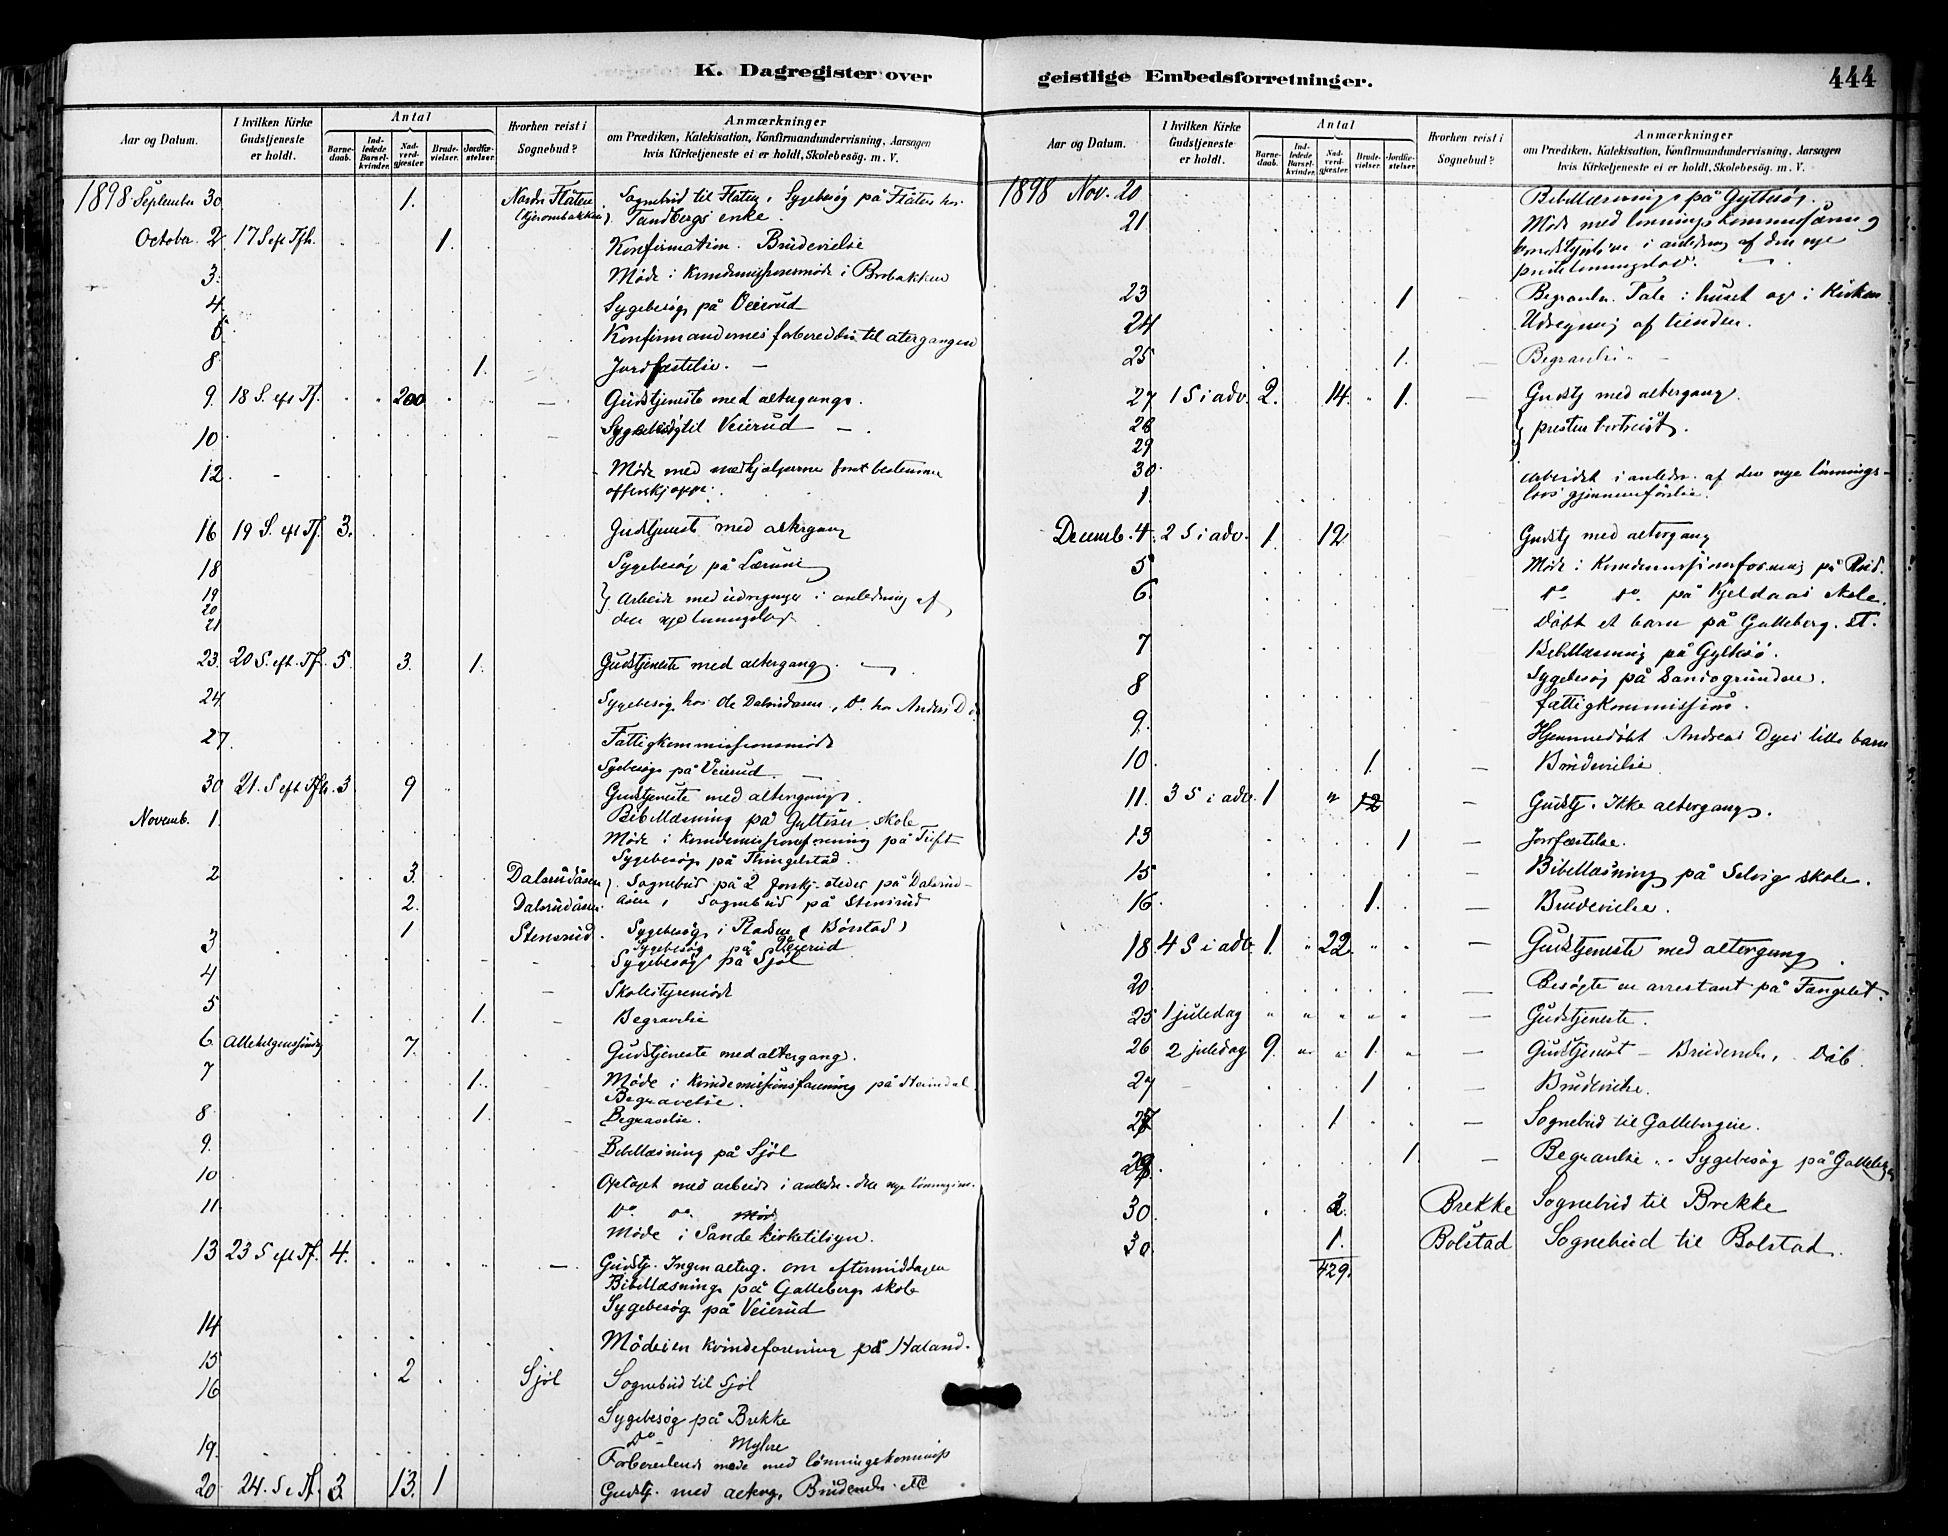 K. Dagregister over
geistlige Embedsforretninger.
444
Aar og Datum.
I hvilken Kirke Gudstjeneste er holdt.
Antal
Barne-daab.
Ind-ledede Barsel-kvinder.
Nad-verd-gjæster
Brude-vielser.
Jordfæ-stelser.
Hvorhen reist i Sognebud?
Anmærkninger
om Prædiken, Katekisation, Konfirmandundervisning, Aarsagen
hvis Kirketjeneste ei er holdt, Skolebesög. m. V.
1898 September 30 1. Nordre Flåten Sognebud til Flåten, Sygebesøg på Flåten hos
Tandbergs enke.
October 2 17 S eft Tfh. 1. Konfirmation. Brudevielse
3. Møde i Kvindemissionsmøde i Brobakken
4. Sygebesøg på Veierud
6 Konfirmandernes forberedelse til altergangen
8 1. Jordfæstelse.
9. 18 S. eft Tf. 200 Gudstjeneste med altergang.
10 til Veierud
12 Møde med medhjælperne
16 19 S. eft Tf. 3. Gudstjeneste med altergang
18 Sygebesøg på
19 Arbeide med udregninger i anledning af
20 den nye lønningslov
21
23. 20 S. eft. Tf. 5. 3. 1. Gudstjeneste med altergang.
24. Sygebesøg hos Ole Dalsrudåsen, Do. hos Anders
27. Fattigkommissionsmøde
Sygebesøg på Veierud
30 21. S eft Tfh. 3. 9 Gudstjeneste med altergang.
Novemb. 1. Bibellæsning på skole
Møde i Kvindemissionsforening på Tuft
Sygebesøg på Thingelstad.
2 3. Dalsrudåsen Sognebud på 2 forskj. steder på Dalsrud-
2. Dalsrudåsen åsen, Sognebud på Stensrud
1 Stensrud. Sygebesøg i
3 Sygebesøg på Veierud
Sygebesøg på Sjøl
4 Skolestyremøde
5 1. Begravelse
6 Allehelgenssøndag 7. Gudstjeneste med altergang.
7 1. Møde i Kvindemissionsforening på
Begravelse.
8 1. Begravelse.
9. Bibellæsning på Sjøl
10 Optaget med arbeide i anledn. den nye
11 Do Do
Møde i Sande kirketilsyn.
13 23 S eft Tf. 4. Gudstj. Ingen alterg. om eftermiddagen
Bibellæsning på Galleberg skole
Sygebesøg på Veierud
14 Møde i en kvindeforening på Haland.
15
16 2 Sjøl Sognebud til Sjøl
Sygebesøg på Brekke
Do
19. Forberedende møde med lønningskommiss
20 24. S e Tf. 3. 13. 1 Gudstj. med alterg. Brudevielse. etc
Aar og Datum.
I hvilken Kirke Gudstjeneste er holdt.
Antal
Barne-daab.
Ind-ledede Barsel-kvinder.
Nad-verd-gjæster.
Brude-vielser.
Jordfæ-stelser.
Hvorhen reist i Sognebud?
Anmærkninger
om Prædiken, Katekisation, Konfirmandundervisning, Aarsagen
hvis Kirketjeneste ei er holdt, Skolebesög. m. V.
1898 Nov. 20 Bibellæsning på Gyltesø.
21 Møde med lønningskommissærene og
i anledning af den nye
23 1 Begravelse. Tale i huset og i Kirken
24 Udregning af tienden.
25 1. Begravelse
27 1 S i adv. 2. 14. 1. Gudstj med altergang.
28 presten bortreist.
29
30 Arbeidet i anledn. af den nye lønnings-
1. lovs gjennemførelse.
Decemb. 4. 2 S i adv. 1. 12 Gudstj med altergang
5 Møde i Kvindemissionsforening på
6. Do Do på Kjeldaas skole.
Døbt et barn på Galleberg. St.
7 Bibellæsning på Gyltesø.
8 Sygebesøg på
Fattigkommission.
9. Hjemmedøbt Andreas lille barn
10 1. Brudevielse
11. 3 S i adv 1 " 12 Gudstj. Ikke altergang.
13 1 Jordfæstelse.
15 Bibellæsning på Selvig skole.
16 1. Brudevielse.
18 4 S i adv. 1. 22. Gudstjeneste med altergang
20 Besøgte en arrestant på Fængslet.
25 1 juledag Gudstjeneste.
26 2 juledag 9. 1. Gudstjenest - Brudevielse, Dåb
27 1 Brudevielse.
27 1 Sognebud til
29. 1 Begravelse .. Sygebesøg på Galleberg
30 2. Brekke Sognebud til Brekke
30 1. Bolstad Sognebud til Bolstad.
429.